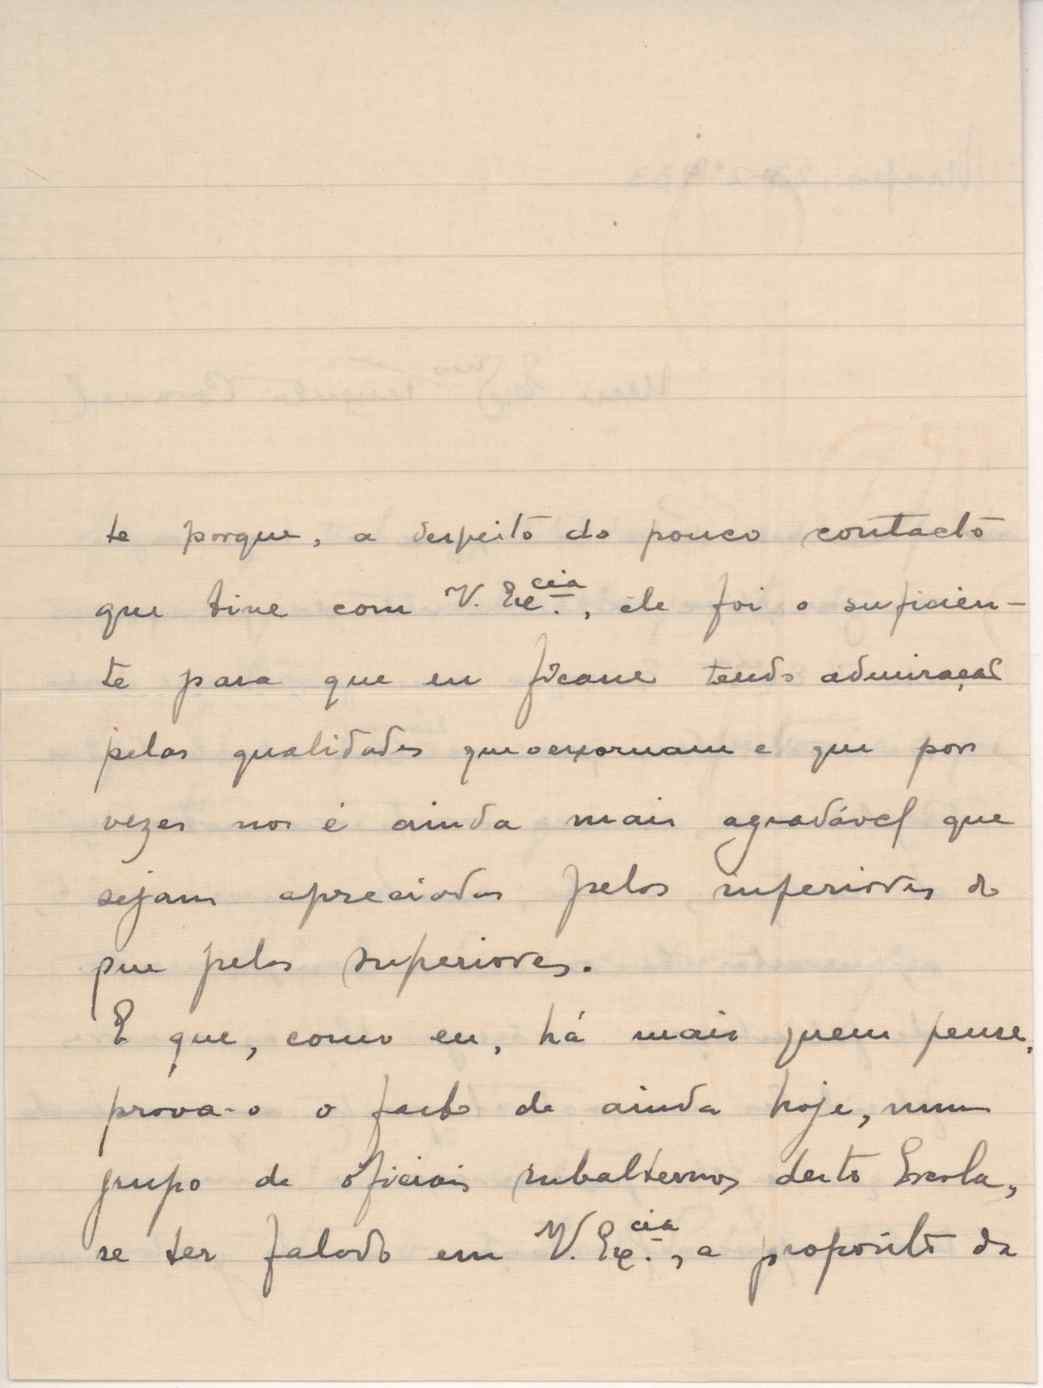 te porque, a despeito do pouco contacto
que tive com V. Ex.cia, êle foi o suficien-
te para que eu ficasse tendo admiração
pelas qualidades que o exornam e que por
vezes nos é ainda mais agradável que
sejam apreciadas pelos inferiores do
que pelos superiores.
E que, como eu, há mais quem pense,
prova-o o facto de ainda hoje, num
grupo de oficiais subalternos desta Escola,
se ter falado em V. Ex.cia, a propósito da